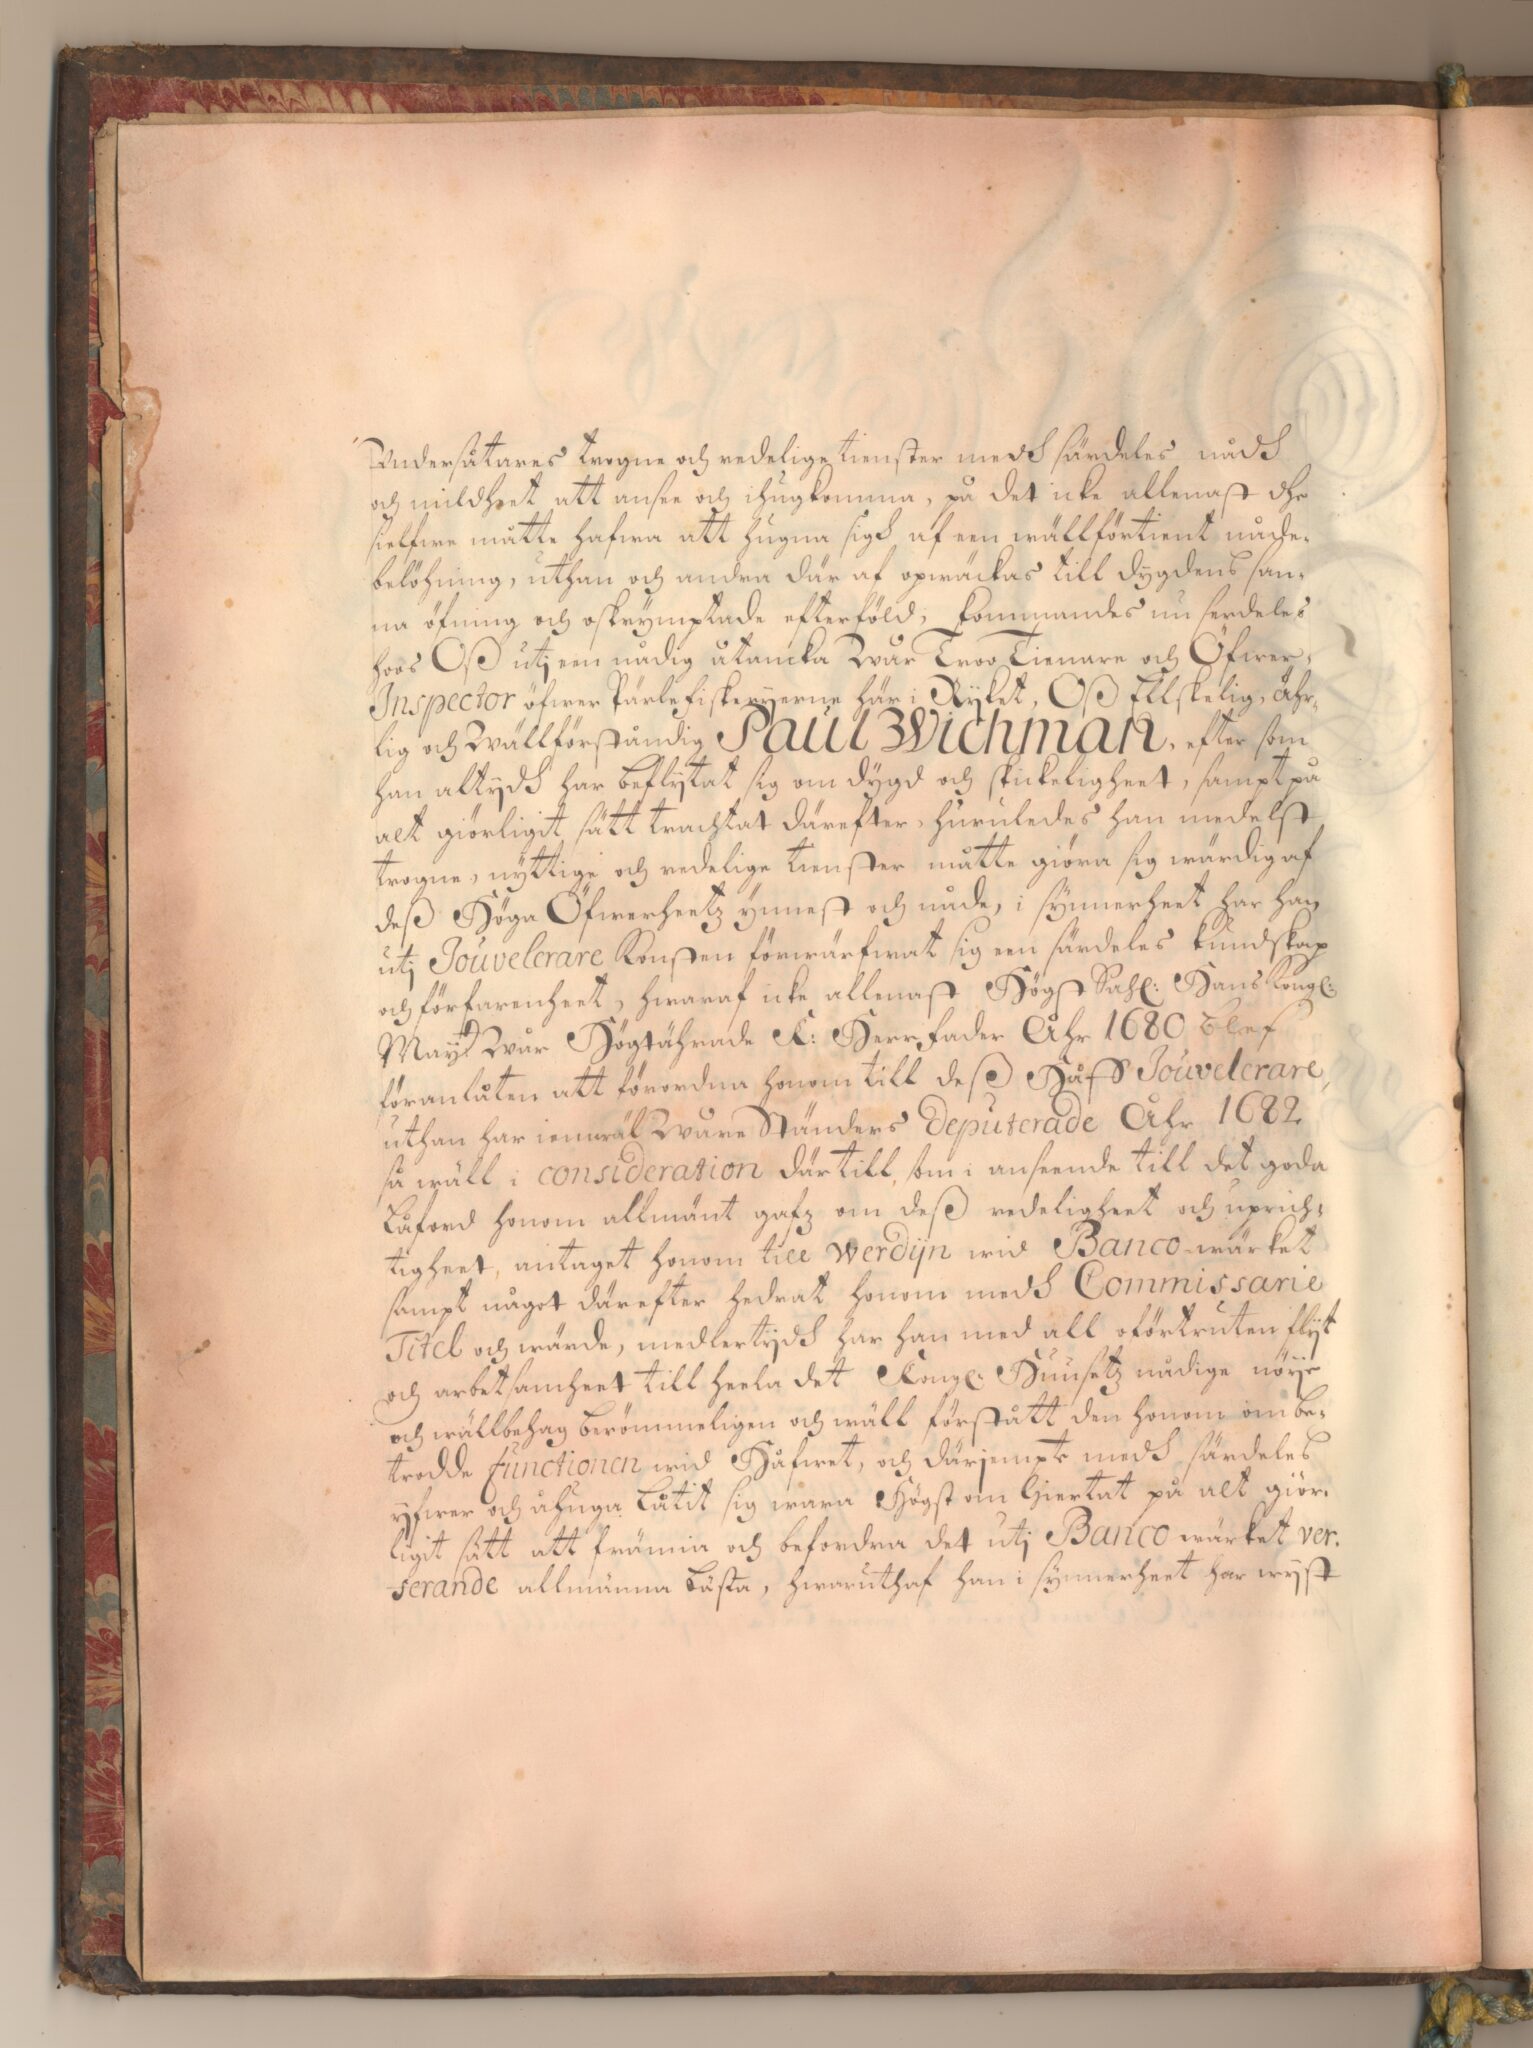 Undersåtares trogne och redelige tienster medh särdeles nådh
och mildheet att ansee och ihugkomma, på det icke allenast dhe
sielfwe måtte hafwa att hugna sigh af een wällförtient nåde-
belöhning, uthan och andra där af opwäckas till dygdens san-
na öfning och oskrymptade efterföld; kommandes nu serdeles
hoos Oß utj een nådig åtancka Wår Troo Tienare och Öfwer-
Inspector öfwer Pärlefiskerijerne här i Ryket, Oß Elskelig, ähr-
lig och Wällförståndig Paul Wichman, efter som
han altydh har beflytat sig om dygd och skickeligheet, sampt på
alt giörligit sätt trachtat därefter, huruledes han medelst
trogne, nyttige och redelige tienster måtte giöra sig wärdig af
deß Höga Öfwerheetz ynnest och nåde, i synnerheet har han
utj Jouvelerare Konsten förwärfwat sig een särdeles kundskap
och förfarenheet, hwaraf icke allenast Högst Sahl: Hans Kongl:
Mayt Wår Högtährade K: Herr Fader Åhr 1680 blef
föranlåten att förordna honom till deß Håff Jouvelerare,
uthan har iemwäl Wåre Ständers Deputerade Åhr 1682
så wäll i consideration därtill, som i anseende till det goda
Låford honom allmänt gafz om deß redeligheet och uprich-
tigheet, antaget honom till Werdijn wid Banco-wärket
sampt något därefter hedrat honom medh Commissarie
Titel och wärde, medlertydh har han med all oförtruten flyt
och arbetsamheet till heela det Kongl: Huusetz nådige nöije
och wällbehag berömmeligen och wäll förstått den honom ombe-
trodde functionen wid Håfwet, och därjempte medh särdeles
yfwer och åhuga låtit sig wara högst om hiertat på alt giör-
ligit sätt att främia och befordra det utj Banco wärket ver-
serande allmänna bästa, hwaruthaf han i synnerheet har wyst